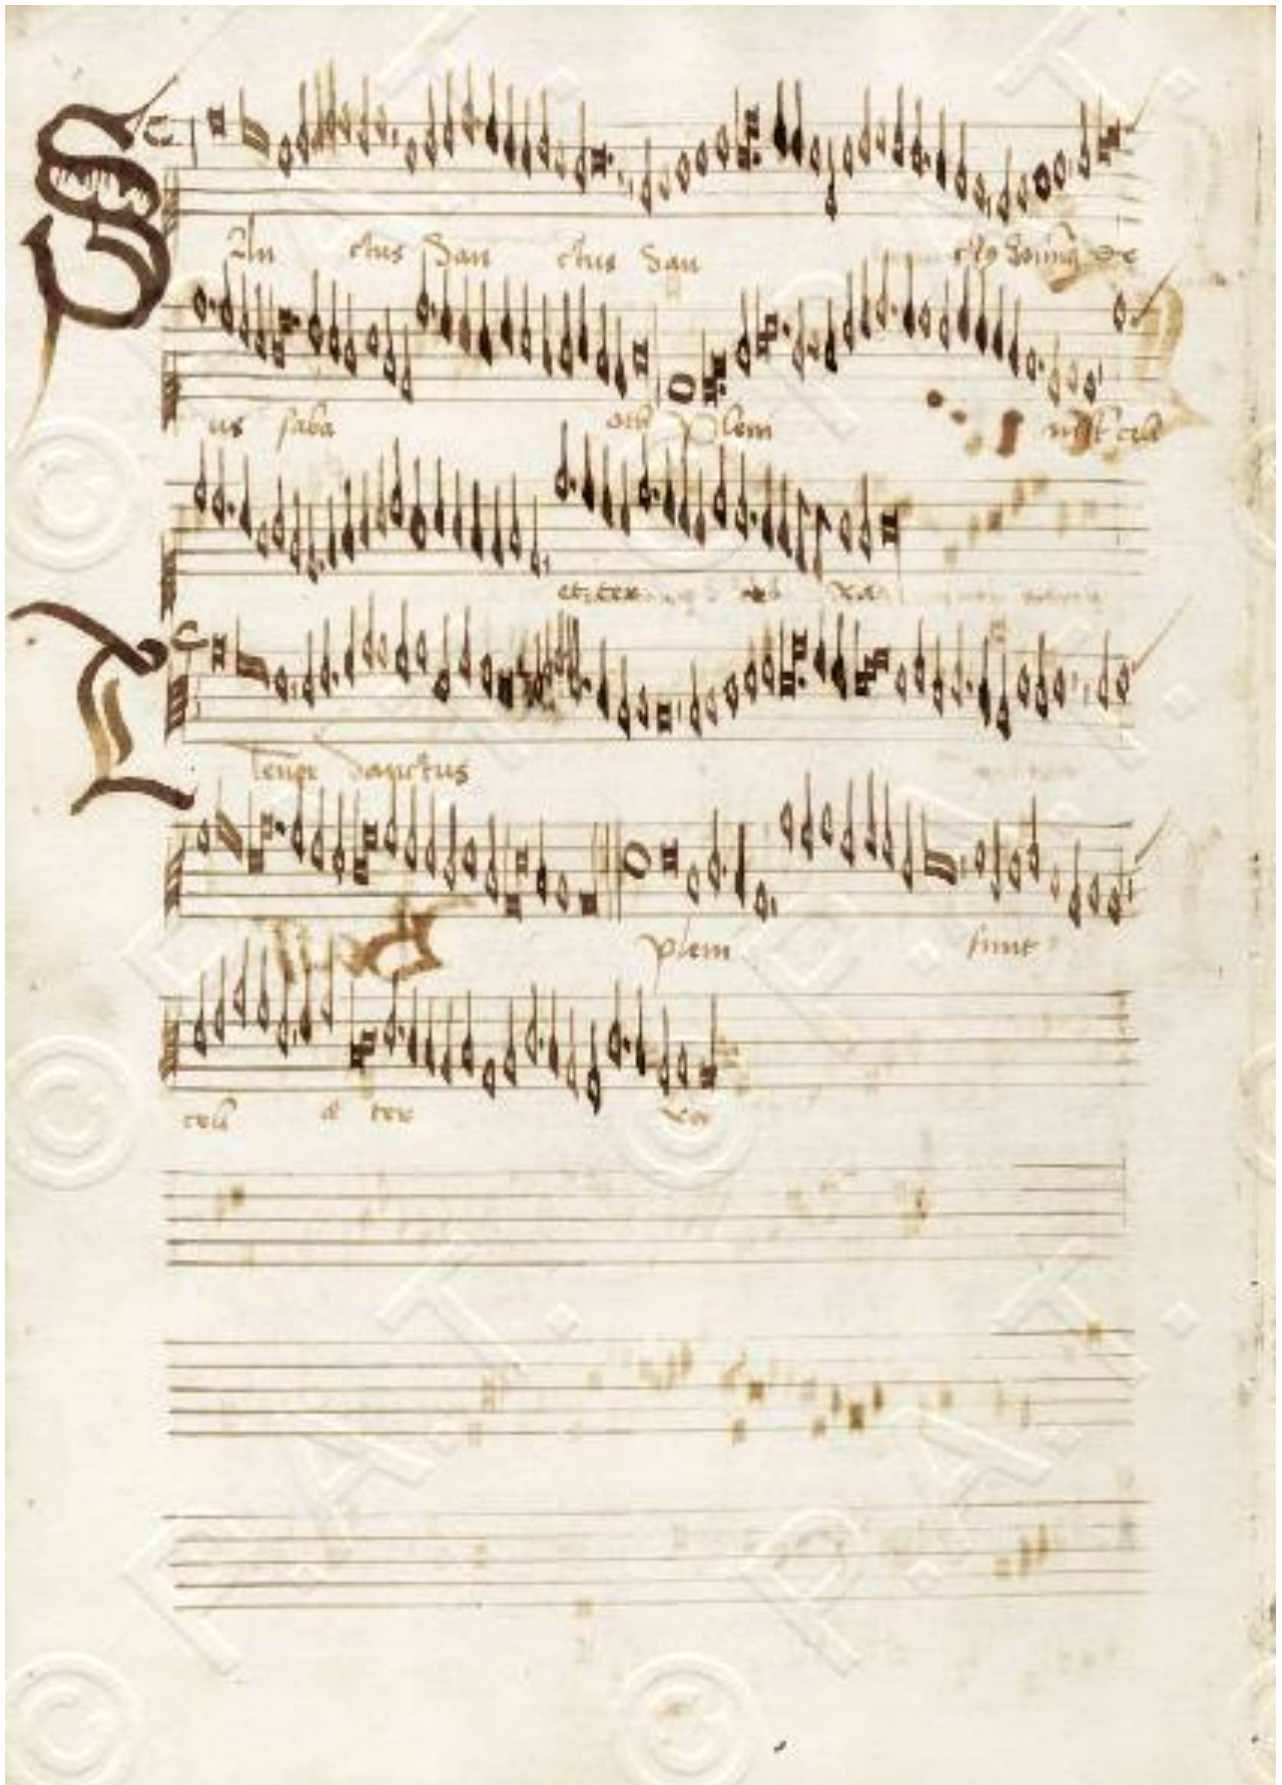 SAn ctus San ctus San ctus domin9 de
us saba oth pleni sunt celi
et ter ra
Tenor Sanctus
pleni sunt
celi et ter ra
© P.A.T.